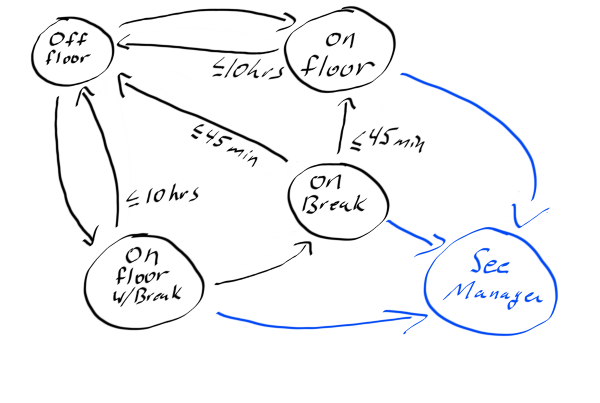 Off
floor
On
floor
≤10hrs
≤45min
≤45min
On
Break
≤10hrs
On
floor
w/Break
See
Manager